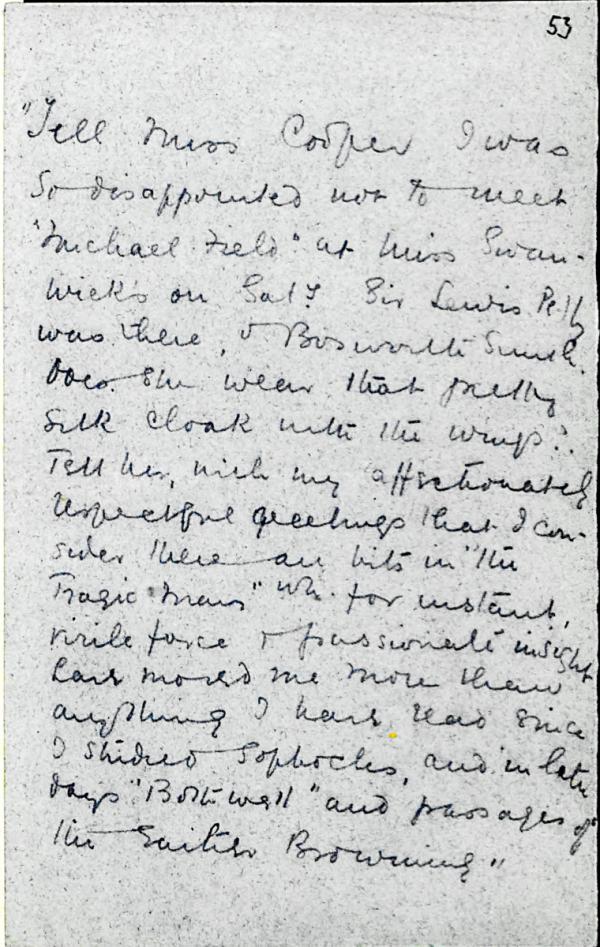 53
"Tell Miss Cooper I was
so disappointed not to meet
"Michael Field" at Miss Swan-
wick's on Sat? Sir Lewis Pelly
was there, & Bosworth Smith.
Does she wear that pretty
silk cloak with the wings?
Tell her, with my affectionately
respectful greetings that I con-
sider there are bits in "the
Tragic Mary" wh. for instant,
virile force & passionate insight
have moved me more than
anything I have read since
I studied Sophocles, and in later
days "Bothwell" and passages of
the Earlier Browning"